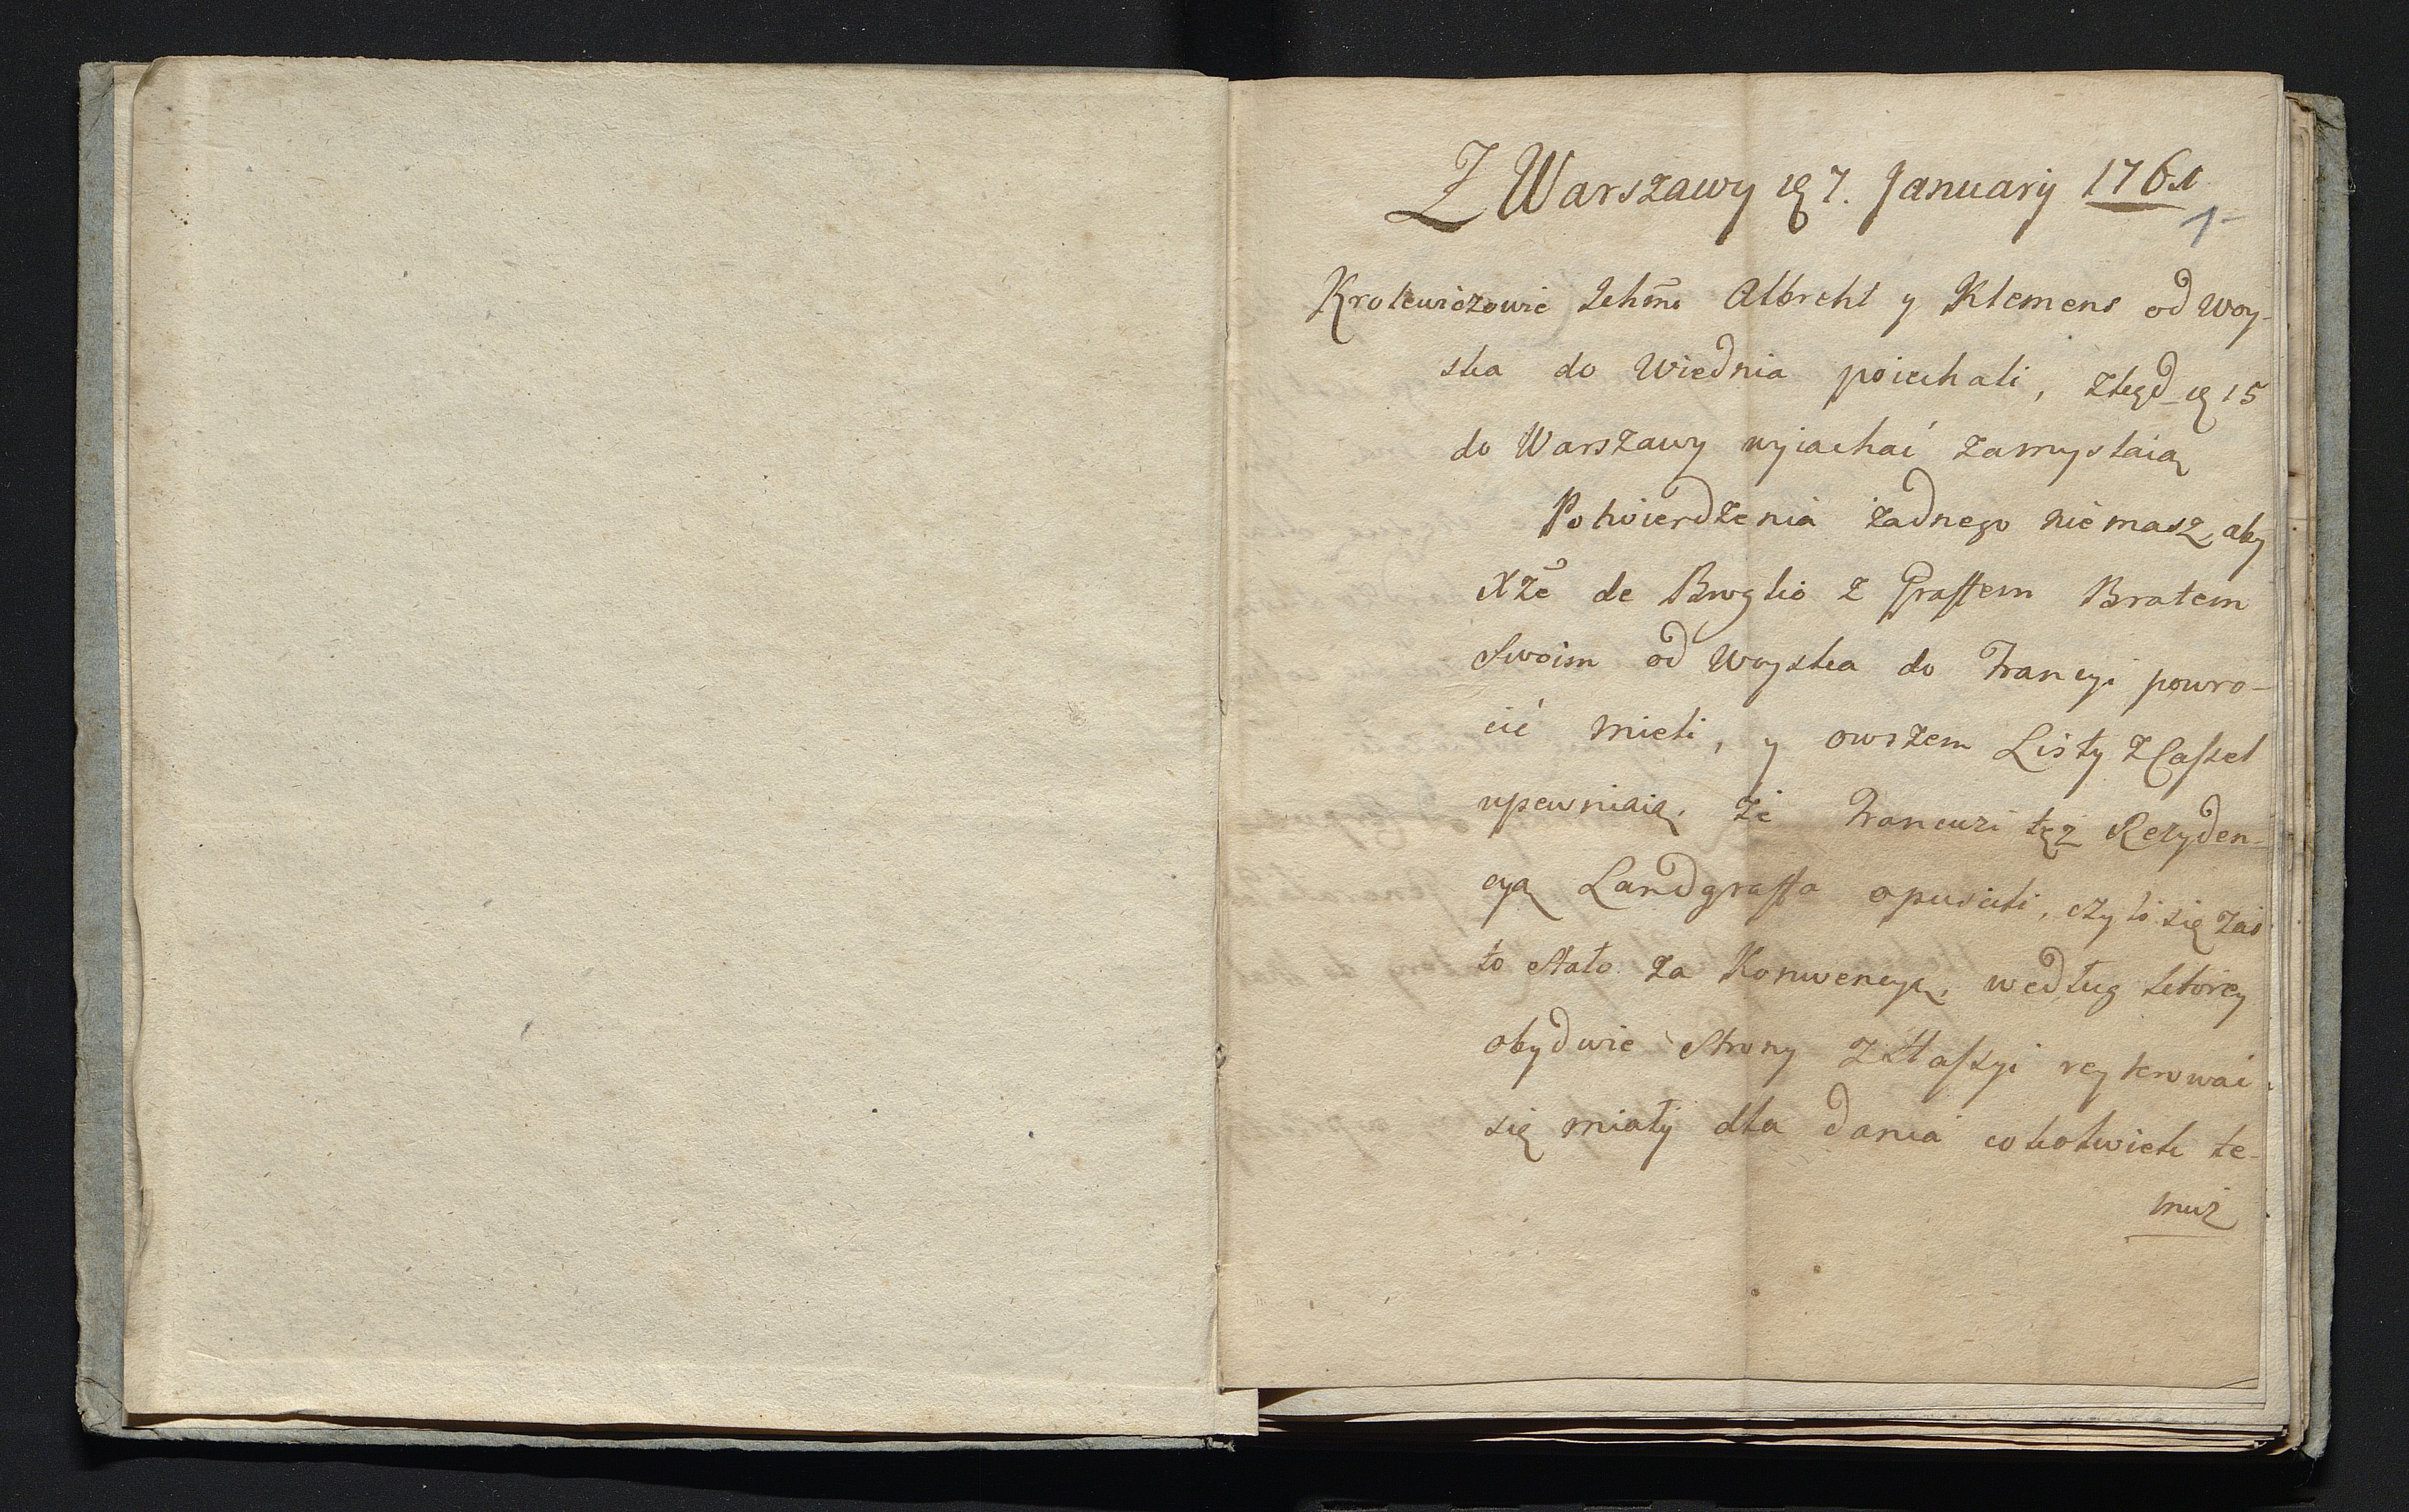 Z Warszawy 7. Januarij 1761
1
Krolewiczowie Ichm̃ Albreht y Klemens od Woy-
ska do Wiednia poiechali, ztąd 15
do Warszawy wyiachać zamyslaią
Potwierdzenia żadnego niemasz, aby
Xże de Broglio z Graffem Bratem
Swoim od Woyska do Francyi powro-
cić mieli, y owszem Listy z Cassel
upewniaią. że Francuzi tęż Rezyden-
cyą Landgraffa opuscili, czyli się zaś
to stało za Konwencyą, według ktorey
obydwie Strony z Hassyi reykrować
się miały dla dania cokolwiek te-
muż